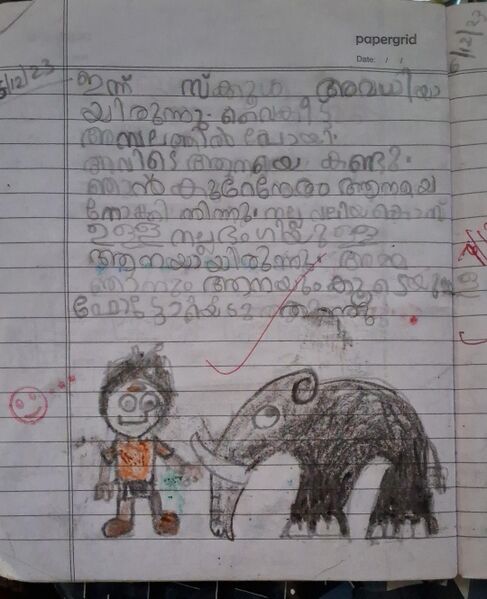 papergrid
Date: / /
5/12/23
ഇന്ന് സ്ക്കൂൾ അവധിയാ
യിരുന്നു. വൈകീട്ട്
അമ്പലത്തിൽ പോയി.
അവിടെ ആനയെ കണ്ടു.
ഞാൻ കുറേനേരം ആനയെ
നോക്കി നിന്നു. നല്ല വലിയ കൊമ്പ്
ഉള്ള നല്ല ഭംഗിയുള്ള
ആനയായിരുന്നു. അമ്മ
ഞാനും ആനയും കൂടെയുള്ള
ഫോട്ടോ